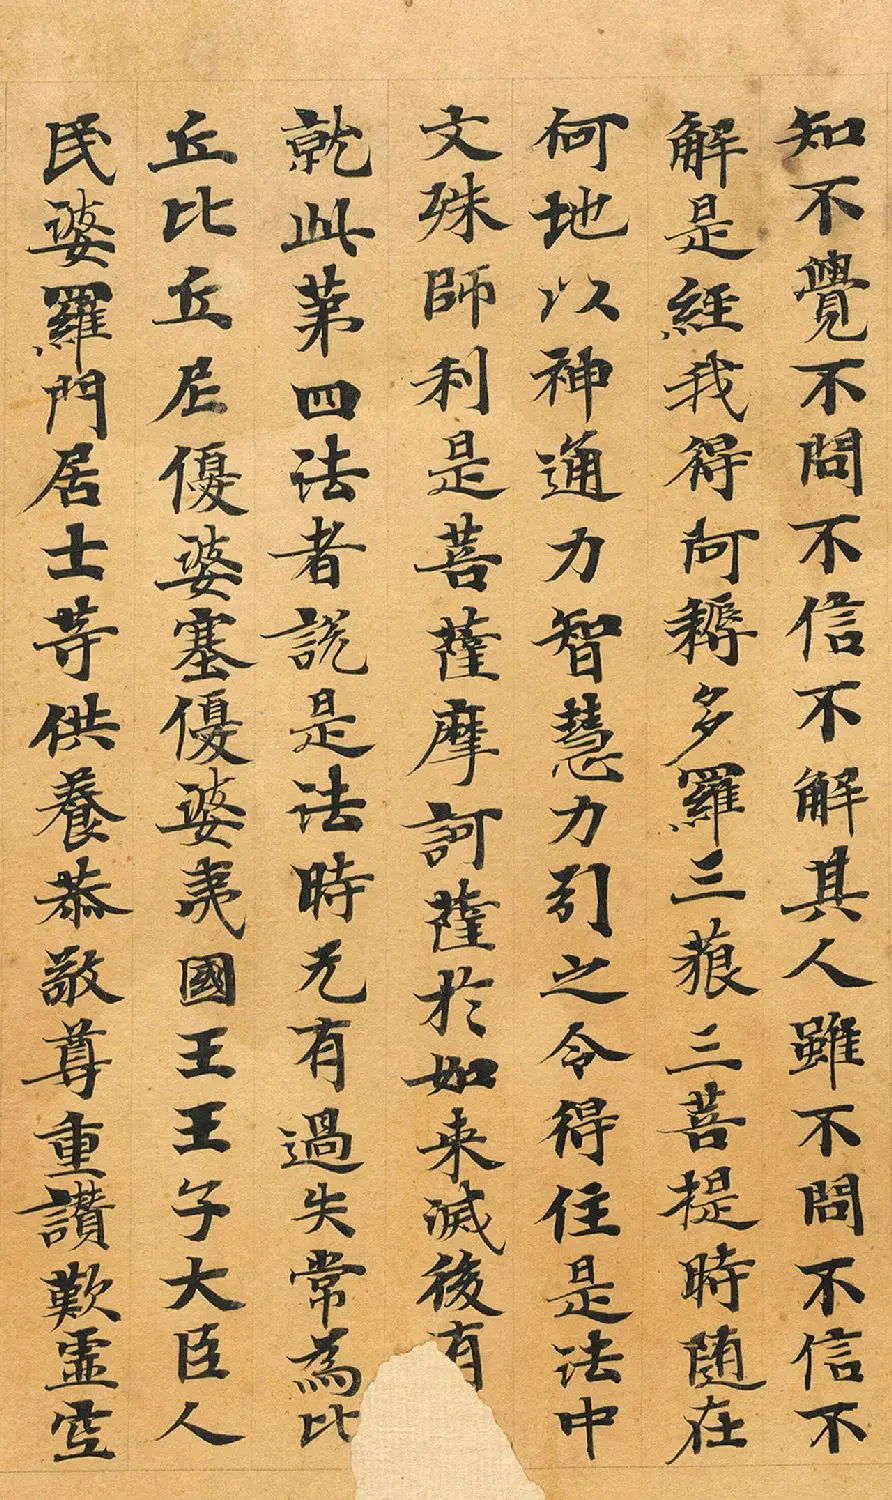 知不覺不問不信不解其人雖不問不信不
解是經我得阿耨多羅三藐三菩提時随在
何地以神通力智慧力引之令得住是法中
文殊師利是菩薩摩訶薩於如来滅後有
就此第四法者說是法時无有過失常為比
丘比丘尼優婆塞優婆夷國王王子大臣人
民婆羅門居士等供養恭敬尊重讚歎虛空